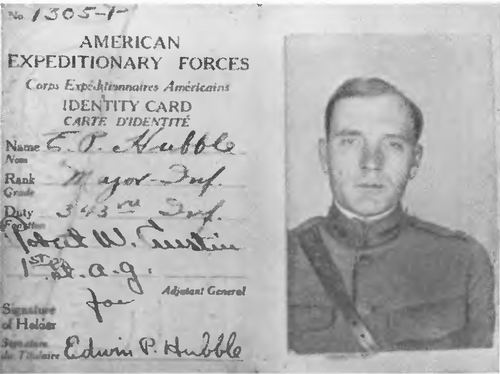 No. 1305-1-
AMERICAN
EXPEDITIONARY FORCES
Corps Expéditionnaires Américains
IDENTITY CARD
CARTE D'IDENTITÉ
Name E. P. Hubble
Nom
Rank Major-Inf.
Grade
Duty 343rd Inf.
Fonction
Robert W.
1st Lt. A.G.
Adjutant General
for
Signature
of Holder
Signature
du Titulaire Edwin P. Hubble